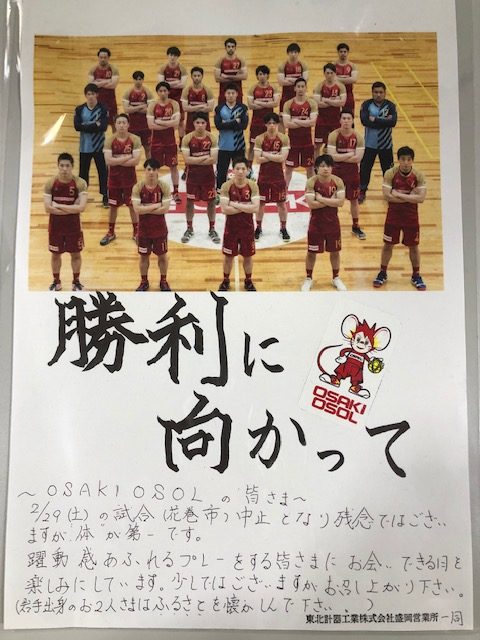 勝利に
向かって
OSAKI
OSOL
～OSAKI OSOL の 皆さま～
2/29(土)の試合(花巻市)中止となり残念ではござい
ますが、体が第一です。
躍動感あふれるプレーをする皆さまに お会いできる日を
楽しみにしています。少しではございますが、お召し上がり下さい。
(岩手出身のお2人さまはふるさとを懐かしんで下さい。)
東北計器工業株式会社盛岡営業所 一同